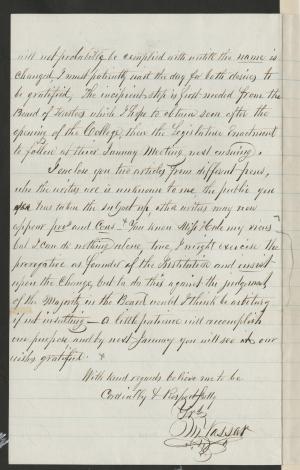 will not probably be complied with untill the name is
changed, I must patiently wait the day for both desires to
be gratified, The incipient step is first needed from the
Board of Trustees which I hope to obtain soon after the
opening of the College, then the Legislature Enactment
to follow at their January Meeting next ensuing.
I enclose you two articles from different pens,
who the writers are is unknown to me, the public you
see has taken the subject up, other writers may now
appear pro and Cons. You know Miss Hale my views
but I can do nothing alone, true, I might exercise the
prerogative as founder of the Institution and insist
upon the Change, but to do this against the judgment
of the Majority in the Board would I think be arbitrary
if not insulting — a little patience will accomplish
our purpose, and by next January you will see our
wishes gratified.
With kind regards believe me to be
Cordially & Respectfully
Yrs
M Vassar